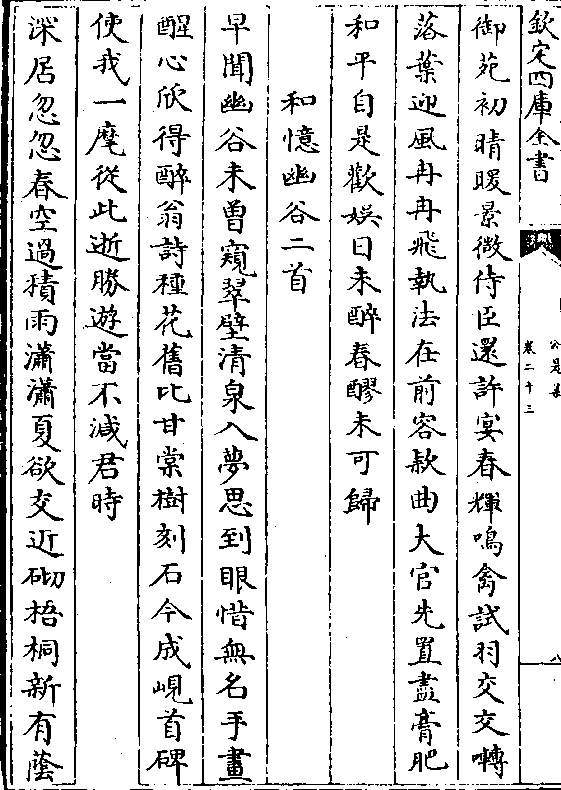 欽定四庫全書
公是集
卷二十三
八
御苑初晴暖景微侍臣還許宴春輝鳴禽試羽交交囀
落葉迎風冉冉飛執法在前容款曲大官先置盡膏肥
和平自是歡娛日未醉春醪未可歸
和憶幽谷二首
早聞幽谷未曽窺翠壁清泉入夢思到眼惜無名手畫
醒心欣得醉翁詩種花舊比甘棠樹刻石今成峴首碑
使我一麾從此逝勝遊當不減君時
深居忽忽春空過積雨瀟瀟夏欲交近砌梧桐新有蔭